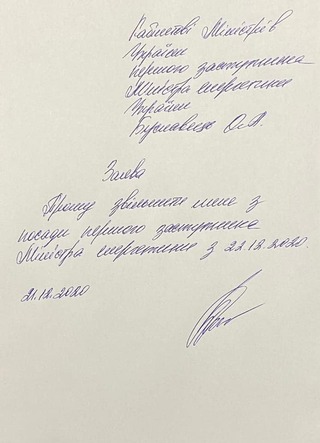 Кабінетві Міністрів
України
першого заступника
Міністра енергетики
України
Буславець О.А.
Заява
Прошу звільнити мене з
посади першого заступника
Міністра енергетики з 22.12.2020.
21.12.2020